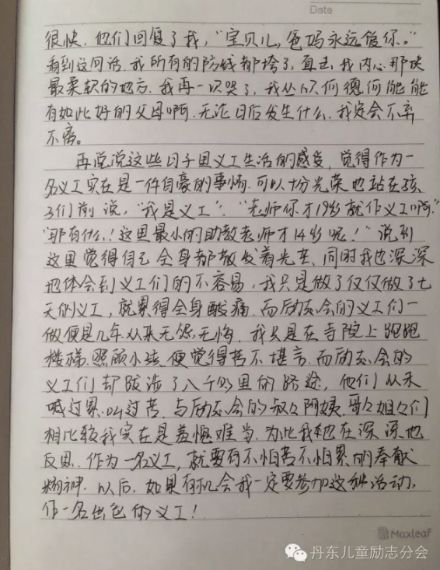 Date
很快,他们回复了我,“宝贝儿,爸妈永远信你。”
看到这句话,我所有的防线都垮了,直击我内心那块
最柔软的地方,我再一次哭了,我丛以何德何能能
有如此好的父母啊,无论日后发生什么,我定会不离
不弃。
再说说这些日子里义工生活的感受,觉得作为一
名义工实在是一件自豪的事情,可以十分光荣地站在孩
子们前说,“我是义工”。“老师你才19岁就作义工啊?”
“那有什么!这里最小的助教老师才14岁呢!”说到
这里觉得自己全身都散发着光芒,同时我也深深
地体会到义工们的不容易,我只是做了仅仅做了七
天的义工,就累得全身酸痛,而励志会的义工们一
做便是几年,从来无怨无悔,我只是在寺院上跑跑
楼梯,照顾小孩,便觉得苦不堪言,而励志会的
义工们却跋涉了八千里的路途,他们从未
喊过累,叫过苦,与励志会的叔叔阿姨,哥哥姐姐们
相比较我实在是羞愧难当,为此我也在深深地
反思,作为一名义工,就要有不怕苦不怕累的奉献
精神,以后,如果有机会我一定要参加这种活动,
作一名出色的义工!
Maxleaf
丹东儿童励志分会